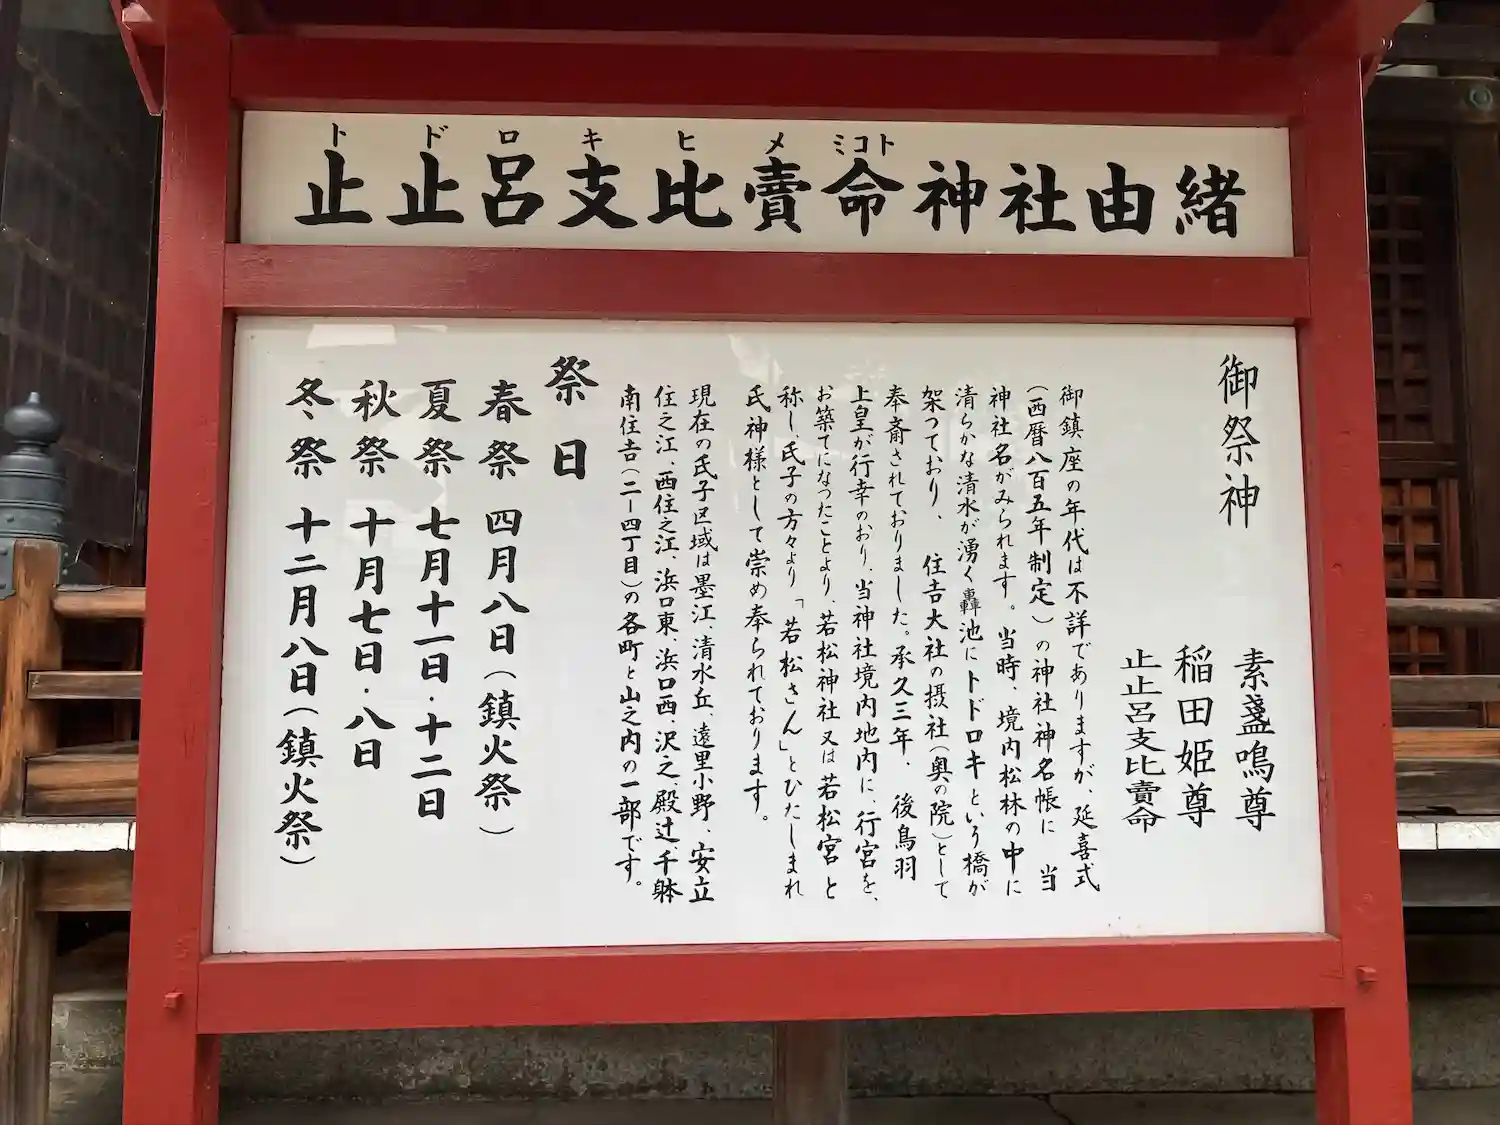 ト ド ロ キ ヒ メ ミコト
止止呂支比賣命神社由緒
御祭神
素盞鳴尊
稲田姫尊
止止呂支比賣命
御鎮座の年代は不詳でありますが、延喜式
(西暦八百五年制定)の神社神名帳に 当
神社名がみられます。当時、境内松林の中に
清らかな清水が湧く轟池にトドロキという橋が
架つており、 住吉大社の摂社(奥の院)として
奉斎されておりました。承久三年、 後鳥羽
上皇が行幸のおり、当神社境内地内に、行宮を、
お築てになつたことより、若松神社又は若松宮と
称し氏子の方々より「若松さん」とひたしまれ
氏神様として崇め奉られております。
現在の氏子区域は墨江、清水丘、遠里小野、安立
住之江、西住之江、浜口東、浜口西、沢之、殿辻、千躰
南住吉(二ー四丁目)の各町と山之内の一部です。
祭日
春祭 四月八日(鎮火祭)
夏祭 七月十一日・十二日
秋祭 十月七日・八日
冬祭 十二月八日(鎮火祭)